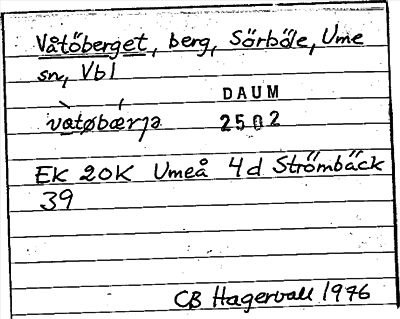 Våtöberget, berg, Sörböle, Ume
sn, Vbl
DAUM
vatøbærjə 2502
EK 20K Umeå 4d Strömbäck
39
CB Hagervall 1976